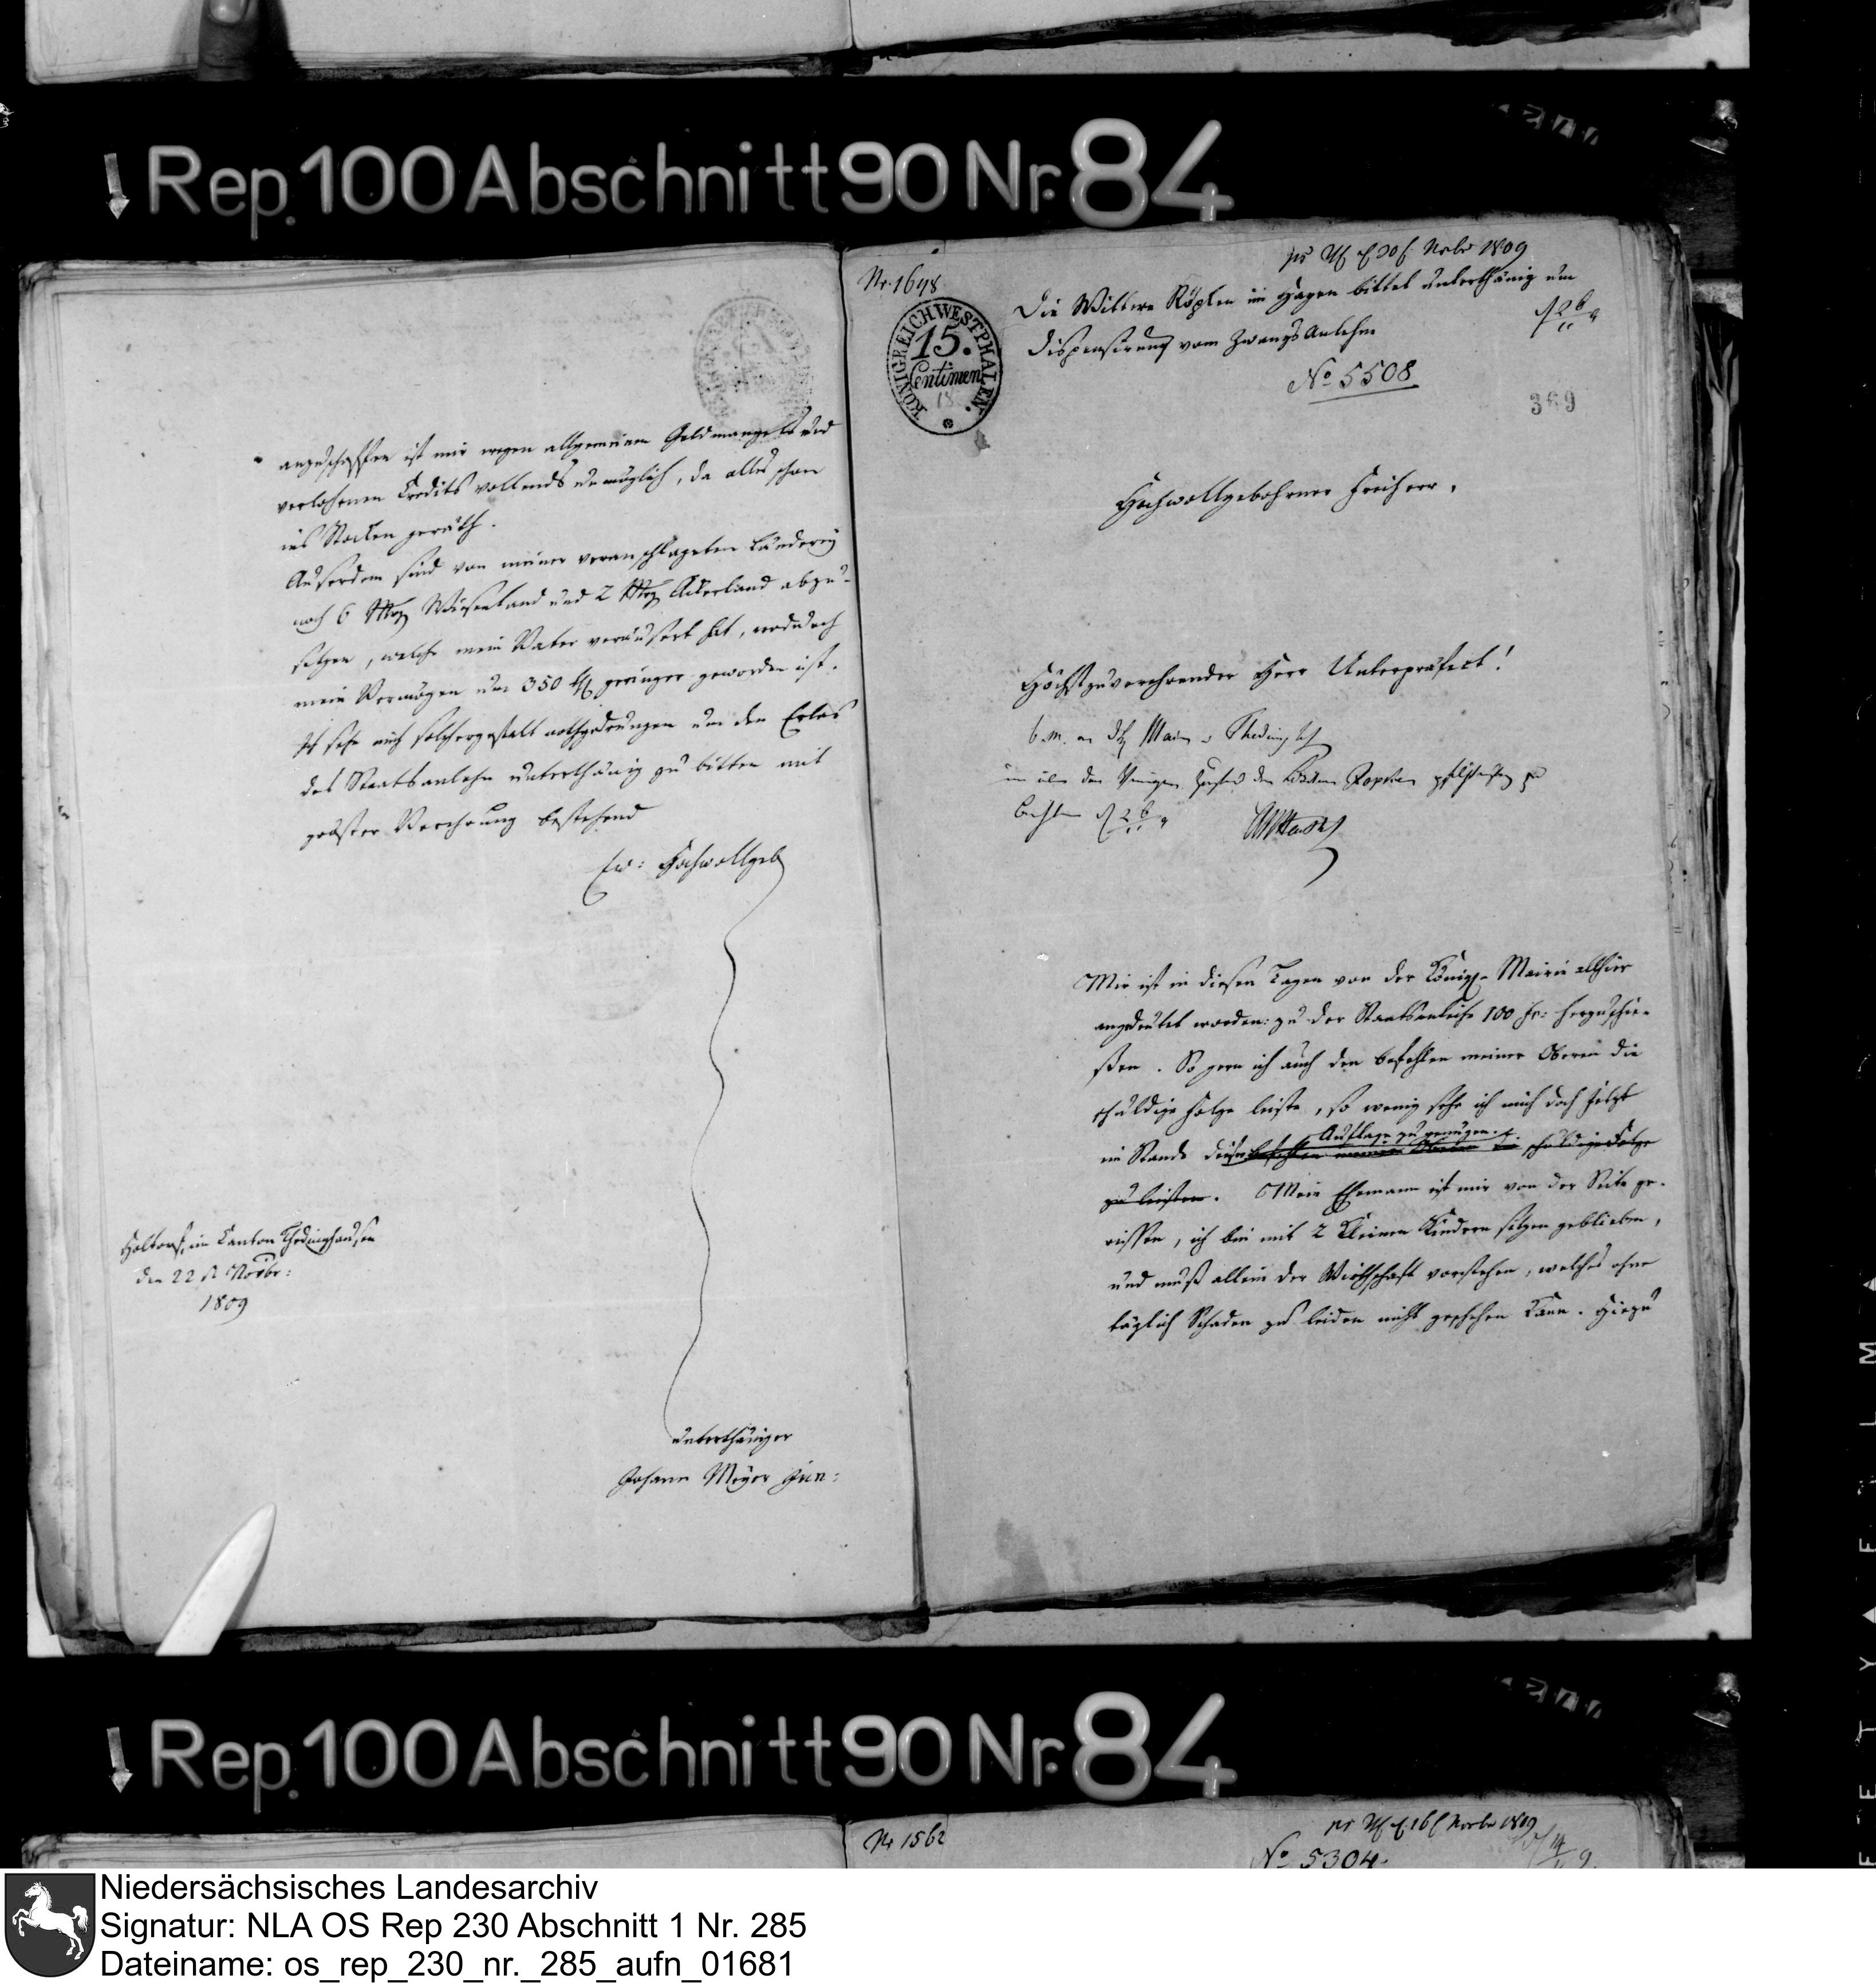 Rep. 100 Abschnitt 90 Nr. 84
anzuschaffen ist mir wegen allgemeinen Geldmangels und
verlohrnen Credits vollends unmöglich, da alles schon
ins Stocken geräth.
Auserdem sind von meiner veranschlageten Länderey
noch 6 Mrg Wiesenland und 2 Mrg Ackerland abzu-
setzen, welche mein Vater veräusert hat, wodurch
mein Vermögen um 350 geringer geworden ist.
Ich sehe mich solchergestalt nothgedrungen um den Erlas
des Staatsanlehn unterthänig zu bitten mit
gröster Verehrung bestehend
Ew: Hochwollgeb
Holtorf, im Canton Thedinghausen
den 22 Novbr:
1809
unterthäniger
Johann Meyer Jun:
Nr. 1698
KÖNIGREICH WESTPHALEN.
15.
Centimen
18
Novbr 1809
Die Wittwe Röpken im Hagen bittet unterthänig um
Dispensirung vom Zwangs Anlehn
No 5508
369
Hochwollgebohrner Freiherr,
Höchstzuverehrender Herr Unterpräfect!
Mir ist in diesen Tagen von der Königl. Mairie allhier
angedeutet worden: zu der Staatsanleihe 100 Fr: herzuschie-
ßen. So gern ich auch den Befehlen meiner Oberen die
schuldige Folge leiste, so wenig sehe ich mich doch jetzt
Auflage zu genügen.
im Stande dieser Befehlen meiner Oberen die schuldige Folge
zu leisten. Mein Ehemann ist mir von der Seite ge-
rissen, ich bin mit 2 kleinen Kindern sitzen geblieben,
und muß allein der Wirthschaft vorstehen, welches ohne
täglich Schaden zu leiden nicht geschehen kann. Hiezu
Rep. 100 Abschnitt 90 Nr. 84
Nr 1562
Novbr 1809
No 5304.
Niedersächsisches Landesarchiv
Signatur: NLA OS Rep 230 Abschnitt 1 Nr. 285
Dateiname: os_rep_230_nr._285_aufn_01681